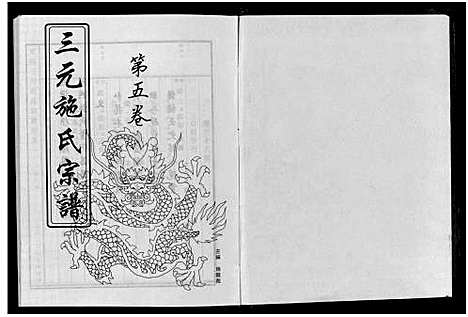 三元施氏宗譜
第五卷
主编